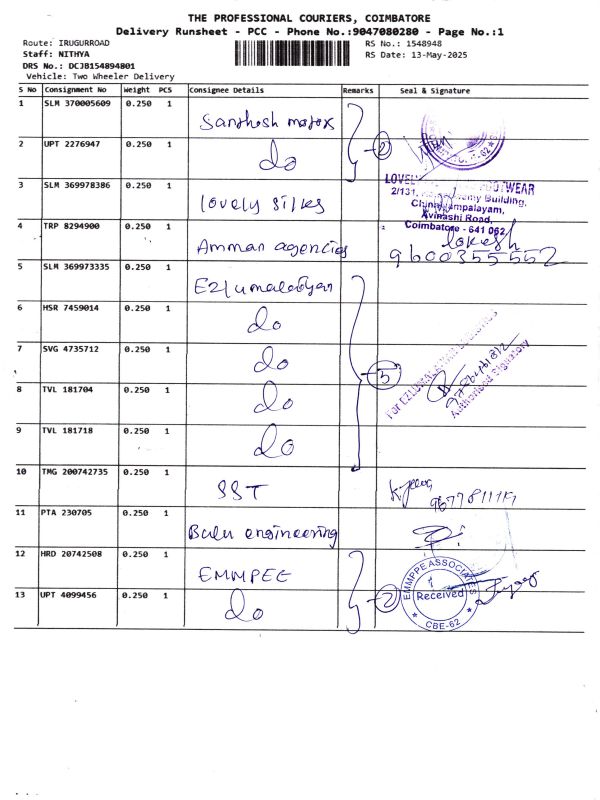 THE PROFESSIONAL COURIERS, COIMBATORE
Delivery Runsheet - PCC - Phone No.:9047080280 - Page No.:1
Route: IRUGURROAD
RS No.: 1548948
Staff: NITHYA
RS Date: 13-May-2025
DRS No.: DCJB154894801
Vehicle: Two Wheeler Delivery
S No Consignment No Weight PCS Consignee Details Remarks Seal & Signature
1 SLM 370005609 0.250 1 Santhosh
2 UPT 2276947 0.250 1 do 2
3 SLM 369978386 0.250 1 lovely silks
LOVELY FOOTWEAR
2/131, Building,
Chinniyampalayam,
Avinashi Road,
Coimbatore - 641 062
4 TRP 8294900 0.250 1 Amman agencies lokesh
9600355552
5 SLM 369973335 0.250 1
6 HSR 7459014 0.250 1 do
7 SVG 4735712 0.250 1 do 5
For
Authorised Signatory
8 TVL 181704 0.250 1 do
9 TVL 181718 0.250 1 do
10 TMG 200742735 0.250 1 SST
11 PTA 230705 0.250 1 Balu engineering
12 HRD 20742508 0.250 1 EMMPEE
13 UPT 4099456 0.250 1 do 2
EMMPPE ASSOCIATES
Received
* CBE-62 *